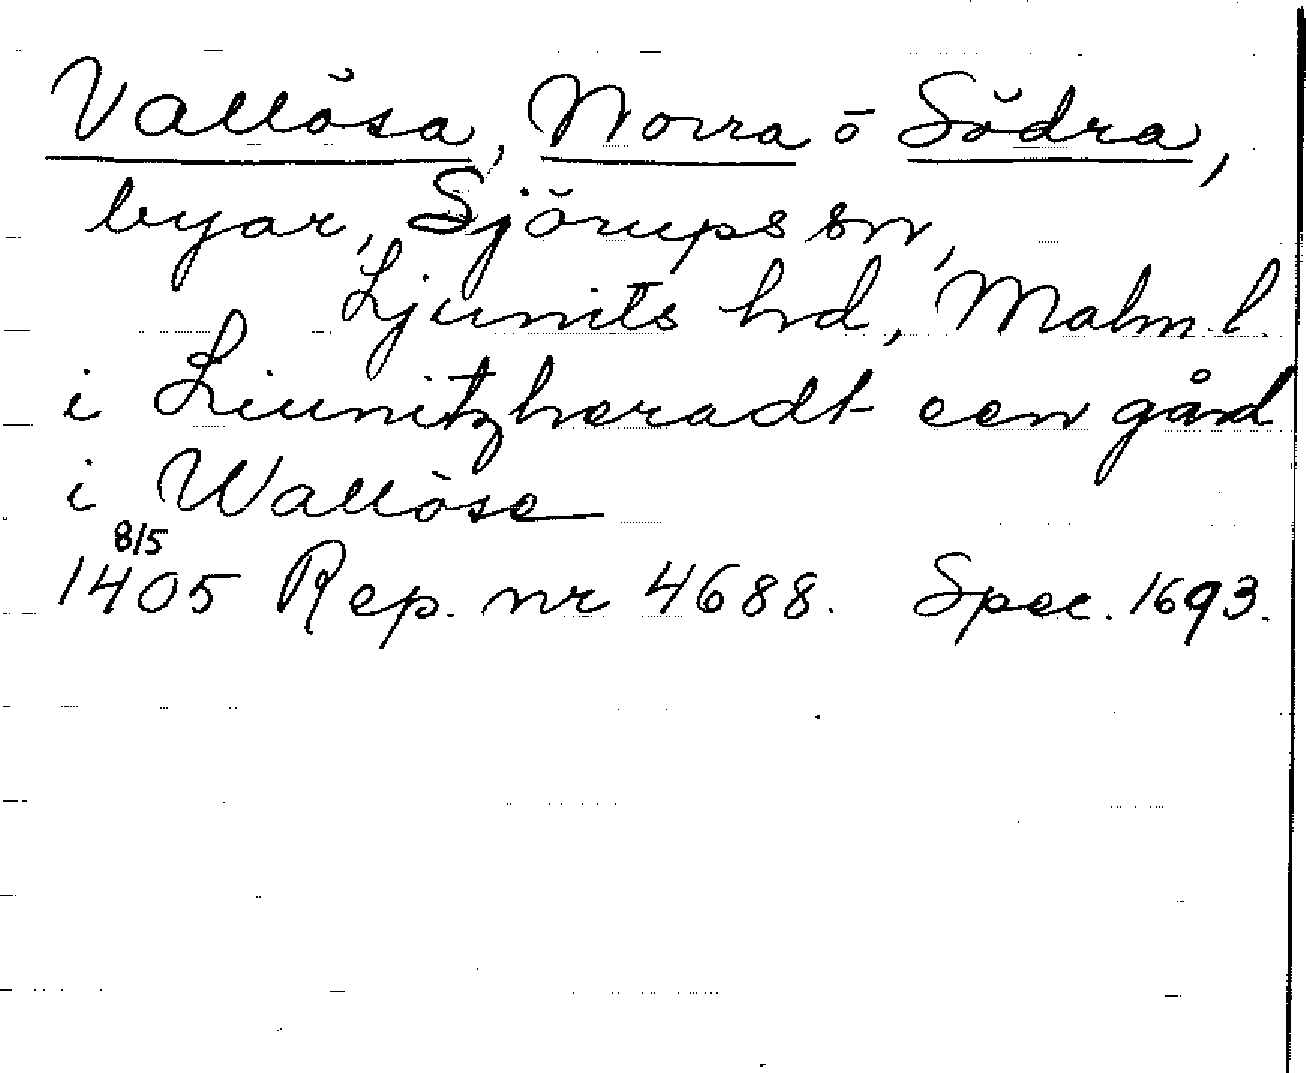 Vallösa, Norra o Södra,
byar, Sjörups sn,
Ljunits hd, Malm. l.
i Liunitzheradt een gård
i Wallöse
8/5
1405 Rep. nr 4688. Spec. 1693.